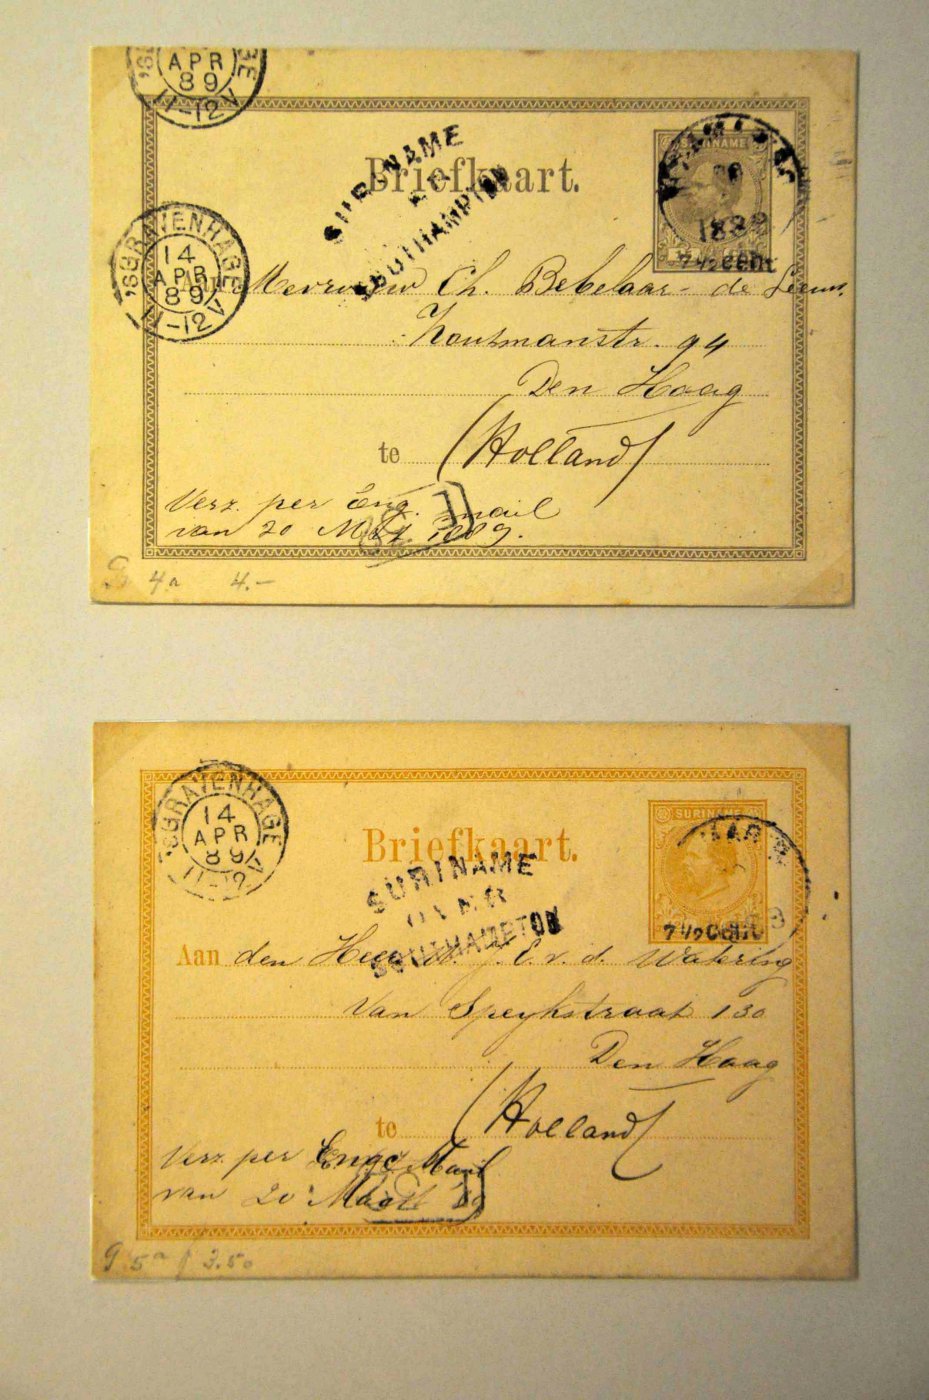 APR
89
11-12V
SURINAME
SOUTHAMPTON
Briefkaart.
SURINAME
1889
7 1/2 cent
'SGRAVENHAGE
14
APR
89
11-12V
Aan Mevrouw Ch. Bebelaar- de Leeuw
Houtmanstr. 94
Den Haag
te (Holland)
Verz. per Eng. mail
van 20 Mrt 1889.
4a 4.-
'SGRAVENHAGE
14
APR
89
11-12V
Briefkaart.
SURINAME
OVER
SOUTHAMPTON
SURINAME
7 1/2 cent
Aan den Heer J. E. v. d. Watering
Van Speykstraat 130
Den Haag
te (Holland)
Verz. per Enge Mail
van 20 Maart 89
g 5a f 3.50